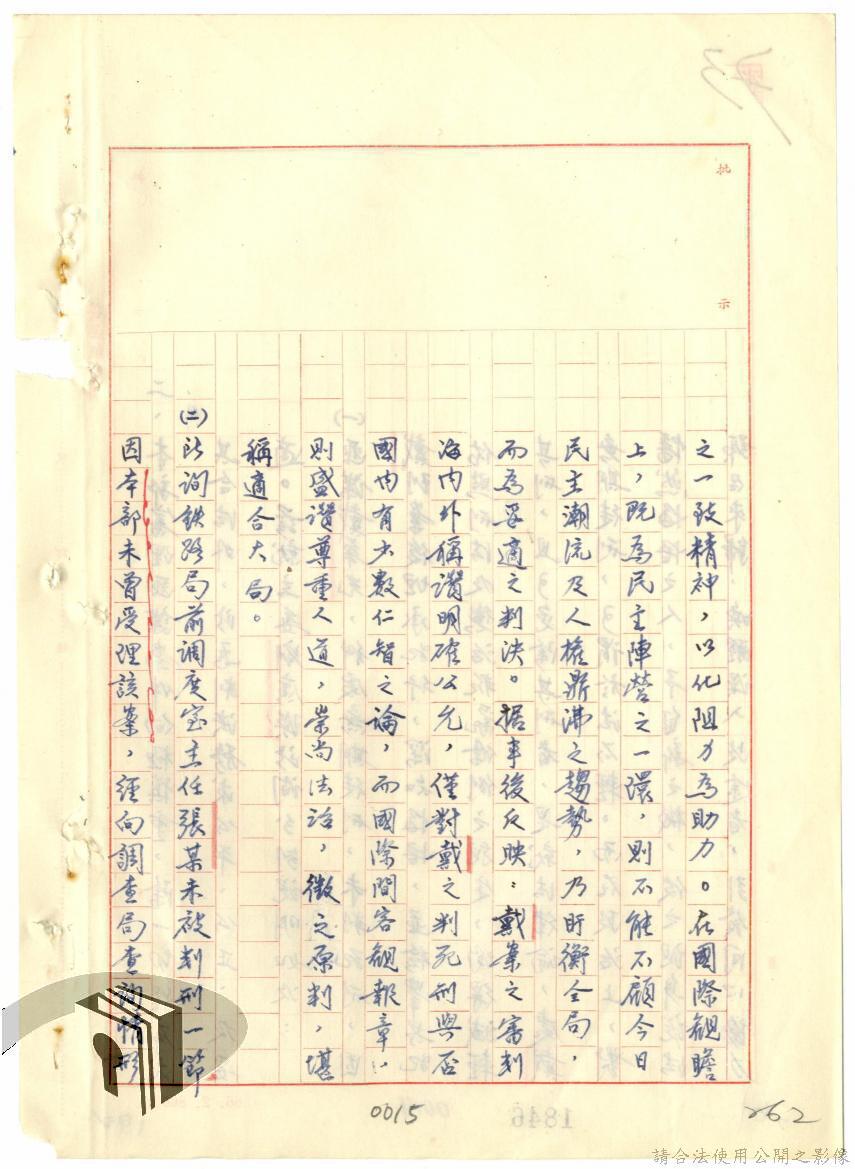 批示
之一致精神，以化阻力為助力。在國際觀瞻
上，既為民主陣營之一環，則不能不顧今日
民主潮流及人權鼎沸之趨勢，乃盱衡全局，
而為妥適之判決。據事後反映：戴案之審判
海內外稱讚明確公允，僅對戴之判死刑與否
國內有少數仁智之論，而國際間客觀報章，
則盛讚尊重人道，崇尚法治，徵之原判，堪
稱適合大局。
㈡所詢鐵路局前調度室主任張某未被判刑一節
因本部未曾受理該案，經向調查局查詢情形
0015
1846
262
請合法使用公開之影像